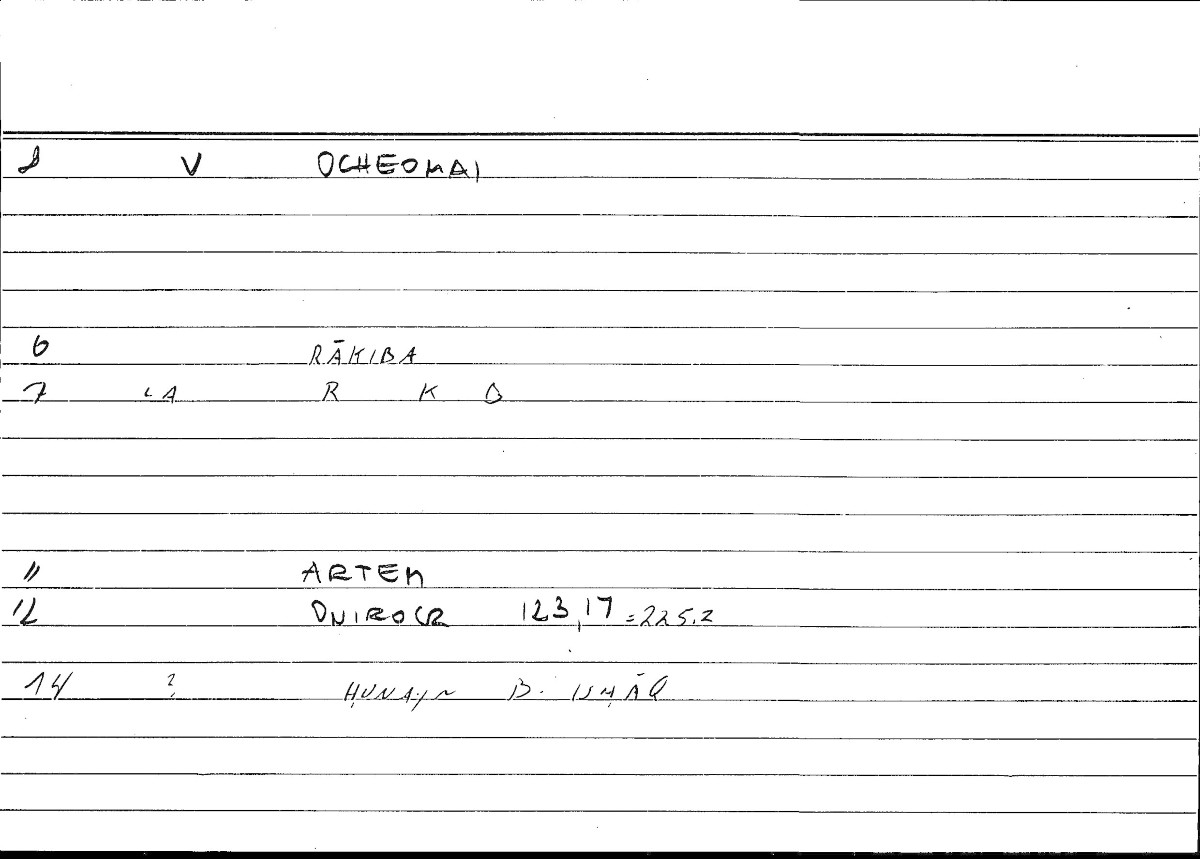 1 V OCHEOMAI
6 RĀKIBA
7 LA R K B
11 ARTEM
12 ONIROCR 123,17 =225.2
14 ? ḤUNAYN B. ISḤĀQ